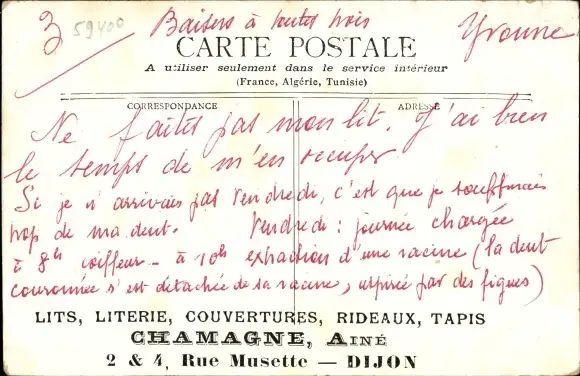 3
59400
Baisers à toutes trois
Yvonne
CARTE POSTALE
A utiliser seulement dans le service intérieur
(France, Algérie, Tunisie)
CORRESPONDANCE
ADRESSE
Ne faites pas mon lit. J'ai bien
le temps de m'en occuper
Si je n'arrivais pas Vendredi, c'est que je souffrirais
trop de ma dent. Vendredi : journée chargée
à 8h coiffeur - à 10h extraction d'une racine (la dent
couronnée s'est détachée de sa racine, aspirée par des figues)
LITS, LITERIE, COUVERTURES, RIDEAUX, TAPIS
CHAMAGNE, AINÉ
2 & 4, Rue Musette — DIJON